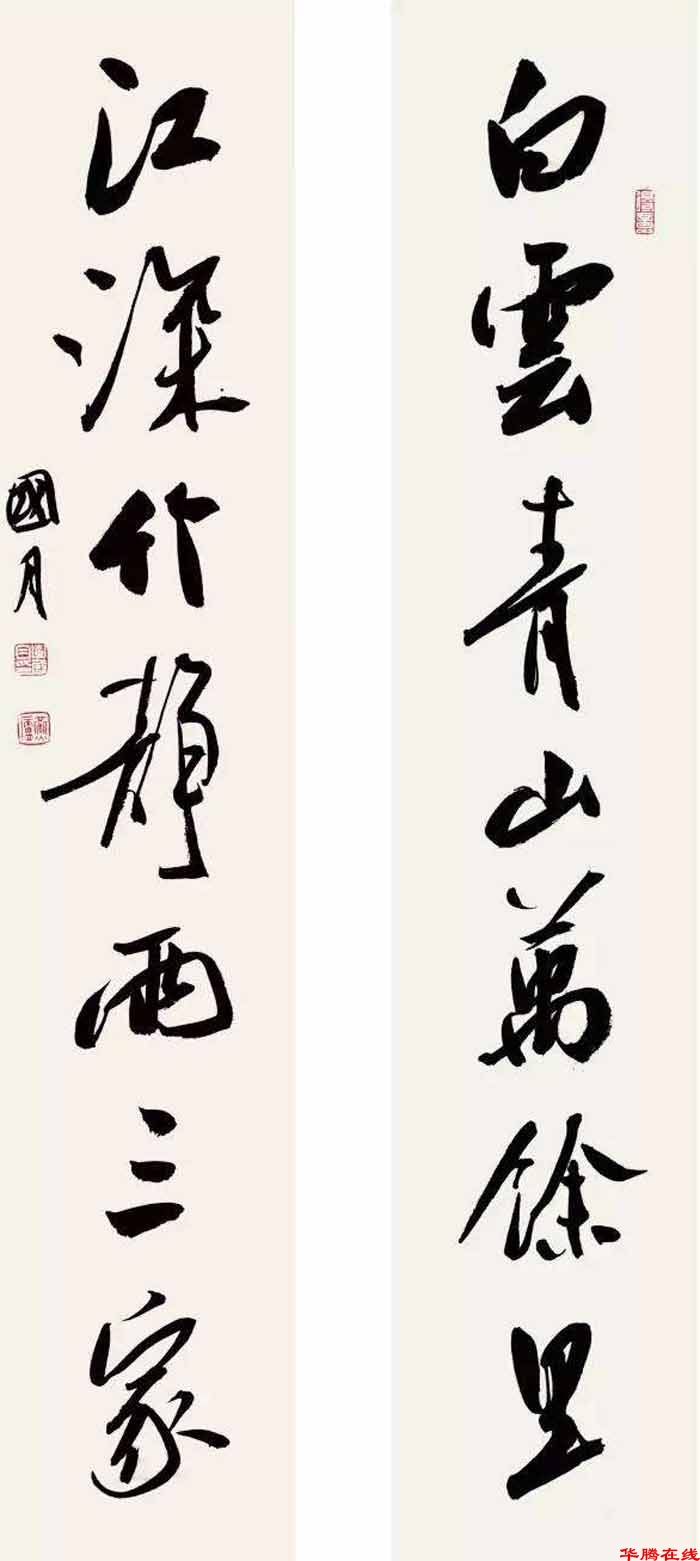 白雲青山萬餘里
江深竹靜兩三家
國月
华腾在线